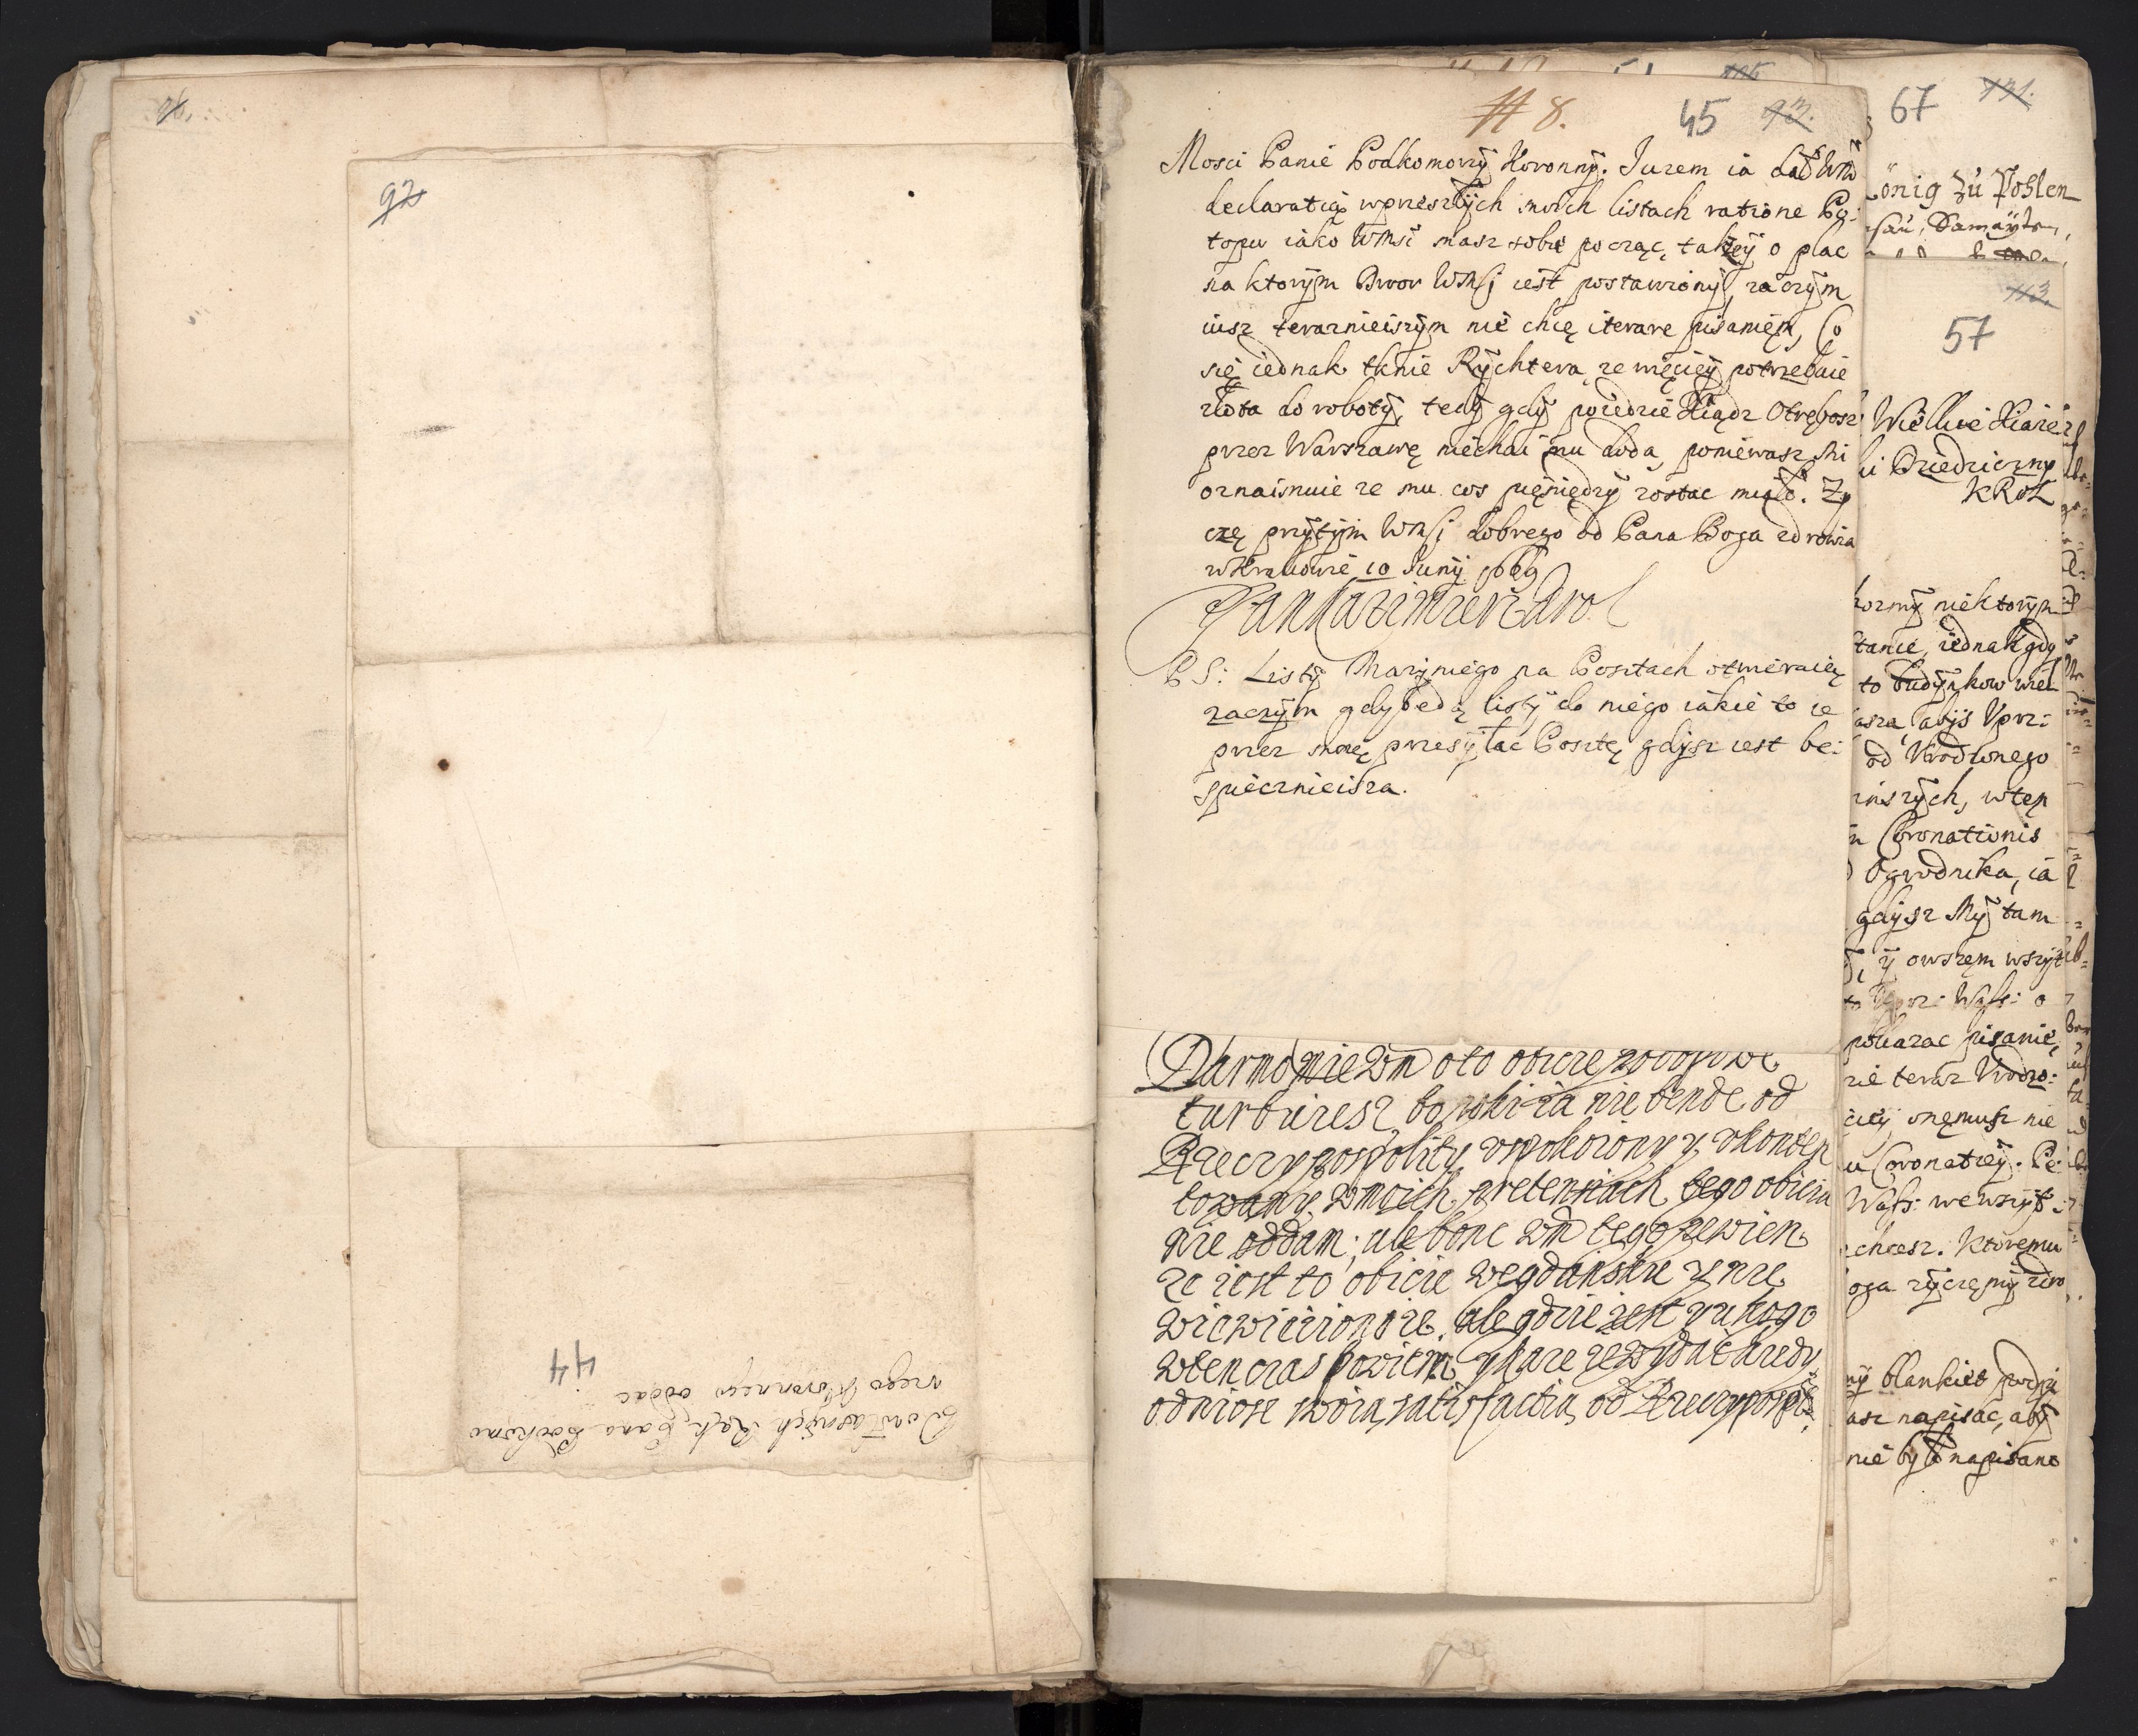 92
44
Do własnych Rąk Pana Podkomo
rzego Koronnego oddac
# 8.
45
93.
Mosci Panie Podkomorzy Koronny. Juzem ia dał Wm
declaratią wprzeszłych moich listach ratione Po:
topu iako Wmsc masz sobie począc, takzey o plac
na ktorym Dwor Wmsc iest postawiony, zaczym
iusz teraznieiszym nie chcę iterare pisaniem, Co
się iednak tknie Rychtera ze więcey potrzebuie
złota do roboty, tedy gdy poiedzie Xiądz Otrębosz
przez Warszawę niechai mu doda, poniewasz mi
oznaimuie ze mu cos pięniędzy zostac miało. Zy
czę przytym Wmsc dobrego od Pana Boga zdrowia
w Krakowie 10 Juny 1669
Jan Kazimierz Krol
PS: Listy Maryniego na Posztach otwieraią
zaczym gdy będą listy do niego iakie to ie
przez moię przesyłac Posztę gdysz iest be:
spiecznieisza.
Darmo mie Wm o to obicie potopowe
turbuiesz, bo poki ia nie bende od
Rzeczypospolity uspokoiony y ukonten
towany w moich pretensiach tego obicia
nie oddam; ale bonc Wm tego pewien
ze iest to obicie we gdansku y nie
wiewiezione. ale gdzie iest y u kogo
wten czas powiem y kaze ie wydac kiedy
odniose moią satisfactią od Rzeczypospo:
67
131.
König zu Pohlen
113.
57
Wielkie Xiaze
ki Dziedziczny
KROL
ktorym
tanie, iednak gdy
to budynkow wiel
asza, abys Uprz:
od Urodzonego
inszych, wten
n Coronationis
Ogrodnika, ia
gdysz My tam
y owszem wszyt
pokazac pisanie,
zie teraz Urodzo:
ciey onemusz nie
u Coronatiey. Pe
we wszyt:
chcesz. Ktoremu
oga zyczemy zdro
ny blankiet podpi
asz napisac, aby
nie było napisano